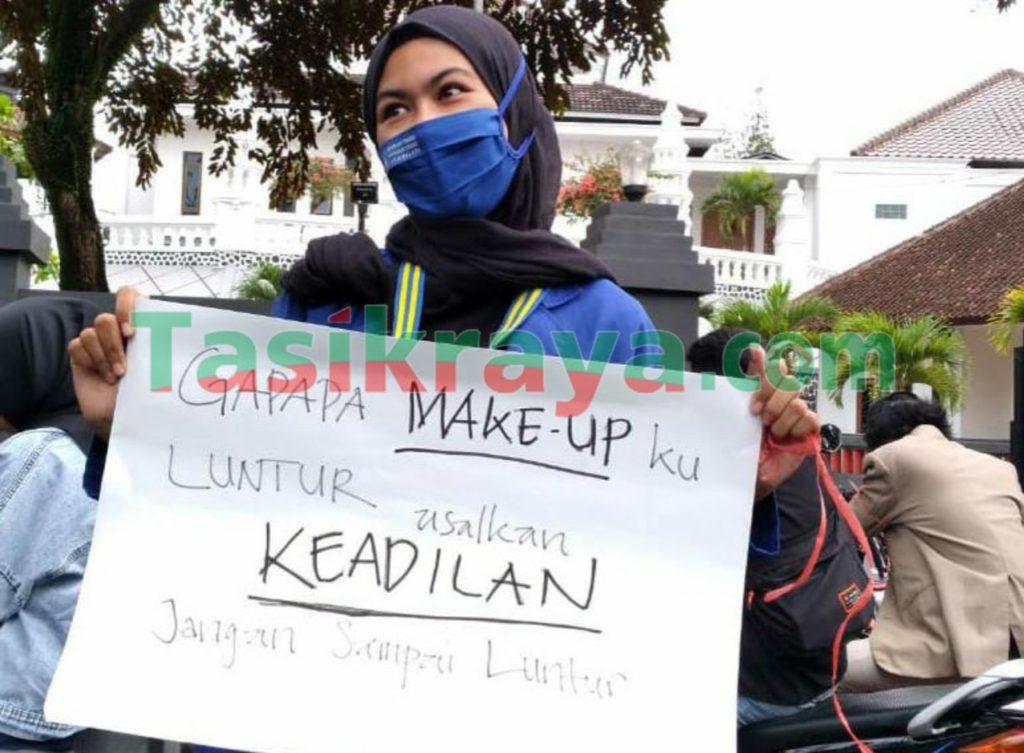 Tasikraya.com
GAPAPA MAKE-UP ku
LUNTUR asalkan
KEADILAN
Jangan Sampai Luntur